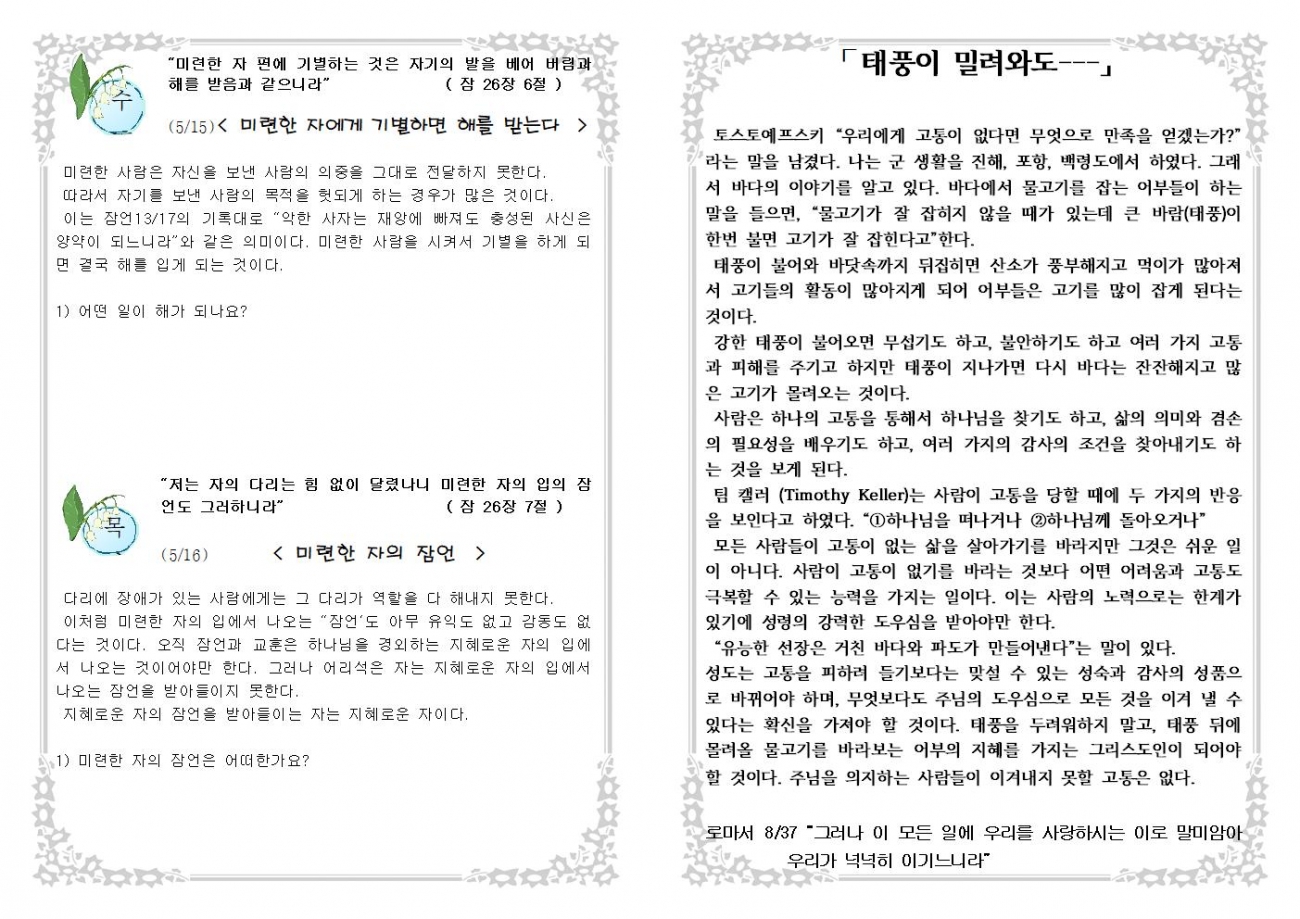 수
“미련한 자 편에 기별하는 것은 자기의 발을 베어 버림과
해를 받음과 같으니라” ( 잠 26장 6절 )
(5/15)< 미련한 자에게 기별하면 해를 받는다 >
미련한 사람은 자신을 보낸 사람의 의중을 그대로 전달하지 못한다.
따라서 자기를 보낸 사람의 목적을 헛되게 하는 경우가 많은 것이다.
이는 잠언13/17의 기록대로 “악한 사자는 재앙에 빠져도 충성된 사신은
양약이 되느니라”와 같은 의미이다. 미련한 사람을 시켜서 기별을 하게 되
면 결국 해를 입게 되는 것이다.
1) 어떤 일이 해가 되나요?
목
“저는 자의 다리는 힘 없이 달렸나니 미련한 자의 입의 잠
언도 그러하니라” ( 잠 26장 7절 )
(5/16) < 미련한 자의 잠언 >
다리에 장애가 있는 사람에게는 그 다리가 역할을 다 해내지 못한다.
이처럼 미련한 자의 입에서 나오는 “잠언‘도 아무 유익도 없고 감동도 없
다는 것이다. 오직 잠언과 교훈은 하나님을 경외하는 지혜로운 자의 입에
서 나오는 것이어야만 한다. 그러나 어리석은 자는 지혜로운 자의 입에서
나오는 잠언을 받아들이지 못한다.
지혜로운 자의 잠언을 받아들이는 자는 지혜로운 자이다.
1) 미련한 자의 잠언은 어떠한가요?
「태풍이 밀려와도---」
토스토예프스키 “우리에게 고통이 없다면 무엇으로 만족을 얻겠는가?”
라는 말을 남겼다. 나는 군 생활을 진해, 포항, 백령도에서 하였다. 그래
서 바다의 이야기를 알고 있다. 바다에서 물고기를 잡는 어부들이 하는
말을 들으면, “물고기가 잘 잡히지 않을 때가 있는데 큰 바람(태풍)이
한번 불면 고기가 잘 잡힌다고”한다.
태풍이 불어와 바닷속까지 뒤집히면 산소가 풍부해지고 먹이가 많아져
서 고기들의 활동이 많아지게 되어 어부들은 고기를 많이 잡게 된다는
것이다.
강한 태풍이 불어오면 무섭기도 하고, 불안하기도 하고 여러 가지 고통
과 피해를 주기고 하지만 태풍이 지나가면 다시 바다는 잔잔해지고 많
은 고기가 몰려오는 것이다.
사람은 하나의 고통을 통해서 하나님을 찾기도 하고, 삶의 의미와 겸손
의 필요성을 배우기도 하고, 여러 가지의 감사의 조건을 찾아내기도 하
는 것을 보게 된다.
팀 캘러 (Timothy Keller)는 사람이 고통을 당할 때에 두 가지의 반응
을 보인다고 하였다. “①하나님을 떠나거나 ②하나님께 돌아오거나”
모든 사람들이 고통이 없는 삶을 살아가기를 바라지만 그것은 쉬운 일
이 아니다. 사람이 고통이 없기를 바라는 것보다 어떤 어려움과 고통도
극복할 수 있는 능력을 가지는 일이다. 이는 사람의 노력으로는 한계가
있기에 성령의 강력한 도우심을 받아야만 한다.
“유능한 선장은 거친 바다와 파도가 만들어낸다”는 말이 있다.
성도는 고통을 피하려 들기보다는 맞설 수 있는 성숙과 감사의 성품으
로 바뀌어야 하며, 무엇보다도 주님의 도우심으로 모든 것을 이겨 낼 수
있다는 확신을 가져야 할 것이다. 태풍을 두려워하지 말고, 태풍 뒤에
몰려올 물고기를 바라보는 어부의 지혜를 가지는 그리스도인이 되어야
할 것이다. 주님을 의지하는 사람들이 이겨내지 못할 고통은 없다.
로마서 8/37 “그러나 이 모든 일에 우리를 사랑하시는 이로 말미암아
우리가 넉넉히 이기느니라”